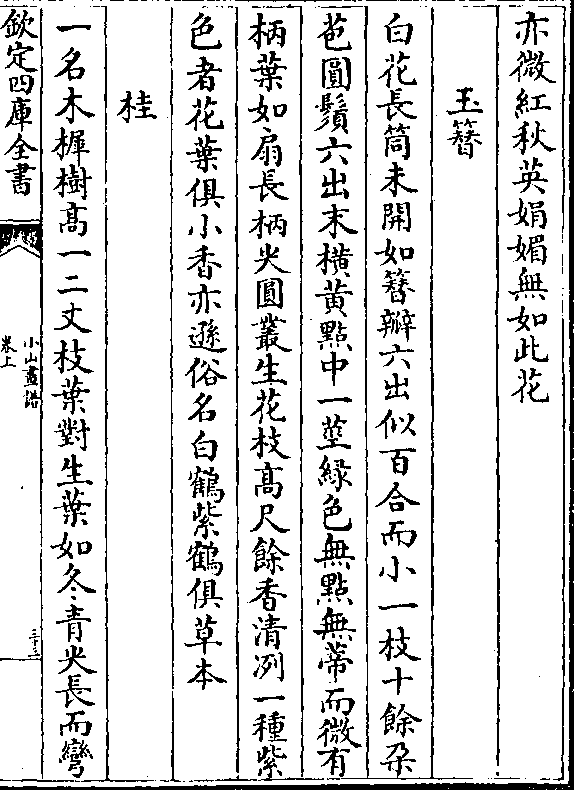 亦微紅秋英娟媚無如此花
玉簪
白花長筒未開如簪瓣六出似百合而小一枝十餘朶
苞圓鬚六出末横黄點中一莖緑色無點無蒂而微有
柄葉如扇長柄尖圓叢生花枝髙尺餘香清冽一種紫
色者花葉俱小香亦遜俗名白鶴紫鶴俱草本
桂
一名木樨樹髙一二丈枝葉對生葉如冬青尖長而彎
欽定四庫全書
小山畫譜
卷上
三十三